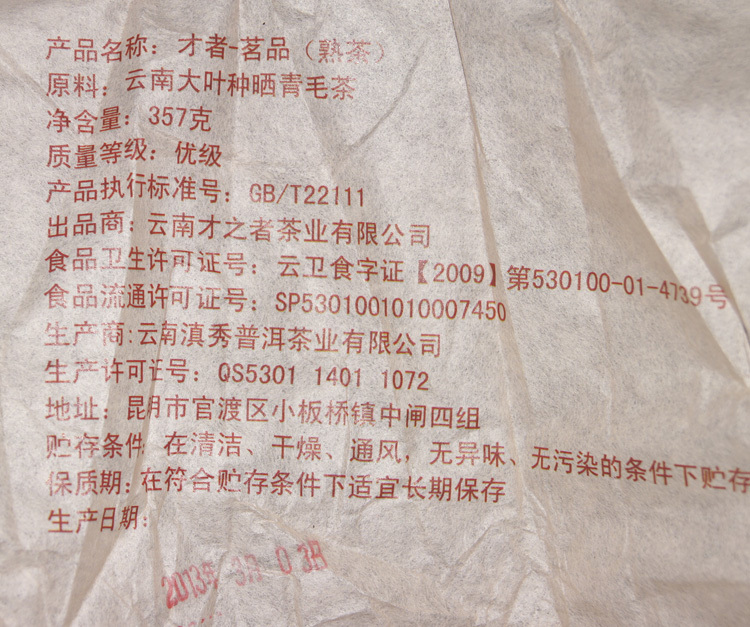 产品名称：才者-茗品（熟茶）
原料：云南大叶种晒青毛茶
净含量：357克
质量等级：优级
产品执行标准号：GB/T22111
出品商：云南才之者茶业有限公司
食品卫生许可证号：云卫食字证【2009】第530100-01-4739号
食品流通许可证号：SP5301001010007450
生产商:云南滇秀普洱茶业有限公司
生产许可证号：QS5301 1401 1072
地址：昆明市官渡区小板桥镇中闸四组
贮存条件 在清洁、干燥、通风，无异味、无污染的条件下贮存
保质期:在符合贮存条件下适宜长期保存
生产日期:
2013年 3月 03日